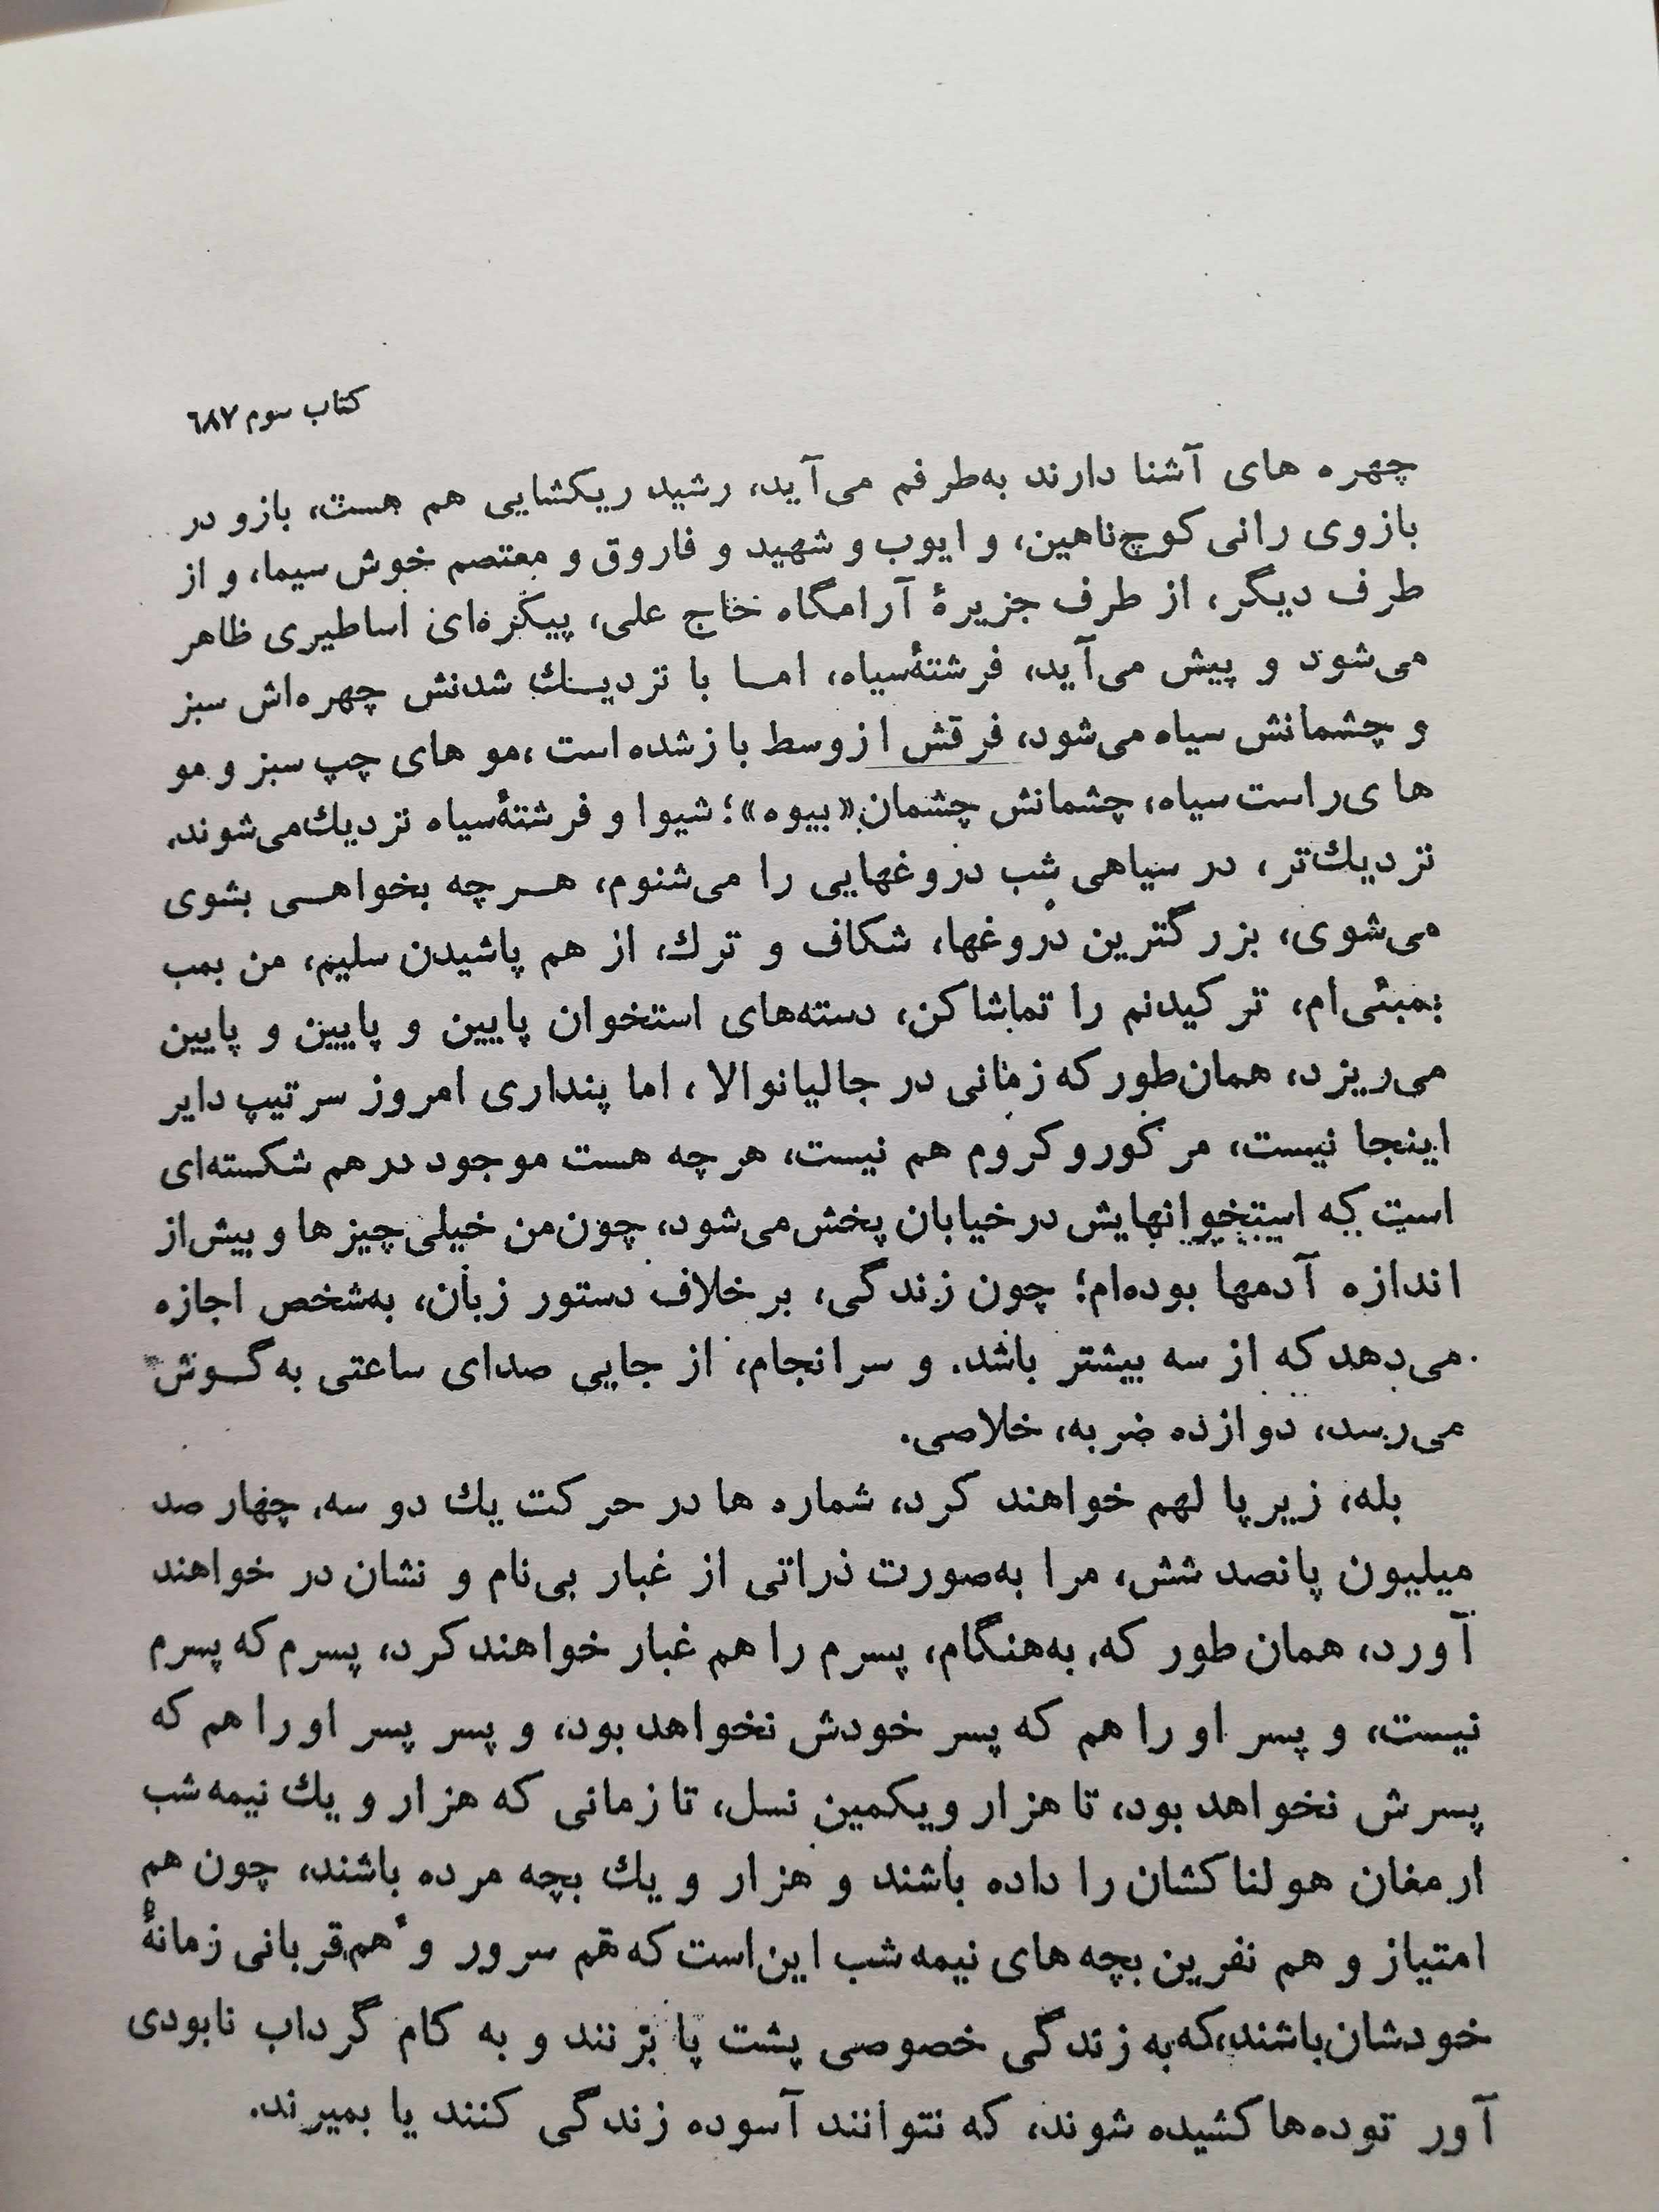 کتاب سوم ٦٨٧
چهره های آشنا دارند به‌طرفم می‌آید، رشید ریکشایی هم هست، بازو در
بازوی رانی کوچ‌ناهین، و ایوب و شهید و فاروق و معتصم خوش سیما، و از
طرف دیگر، از طرف جزیرهٔ آرامگاه خاج علی، پیکره‌ای اساطیری ظاهر
می‌شود و پیش می‌آید، فرشتهٔ‌سیاه، امـا با نزدیـك شدنش چهره‌اش سبز
و چشمانش سیاه می‌شود، فرقش از وسط باز شده است، مو های چپ سبز و مو
های راست سیاه، چشمانش چشمان «بیوه»؛ شیوا و فرشتهٔ‌سیاه نزدیك می‌شوند،
نزدیك‌تر، در سیاهی شب دروغهایی را می‌شنوم، هـر چه بخواهـی بشوی
می‌شوی، بزرگترین دروغها، شکاف و ترك، از هم پاشیدن سلیم، من بمب
بمبئی‌ام، ترکیدنم را تماشا کن، دسته‌های استخوان پایین و پایین و پایین
می‌ریزد، همان‌طور که زمانی در جالیانوالا، اما پنداری امروز سرتیپ دایر
اینجا نیست، مرکوروکروم هم نیست، هر چه هست موجود درهم شکسته‌ای
است که استخوانهایش در خیابان پخش می‌شود، چون من خیلی چیز ها و بیش از
اندازه آدمها بوده‌ام؛ چون زندگی، برخلاف دستور زبان، به‌شخص اجازه
می‌دهد که از سه بیشتر باشد. و سرانجام، از جایی صدای ساعتی به گـوش
می‌رسد، دوازده ضربه، خلاصی.
بله، زیر پا لهم خواهند کرد، شماره ها در حرکت یك دو سه، چهار صد
میلیون پانصد شش، مرا به‌صورت ذراتی از غبار بی‌نام و نشان در خواهند
آورد، همان‌طور که، به‌هنگام، پسرم را هم غبار خواهند کرد، پسرم که پسرم
نیست، و پسر او را هم که پسر خودش نخواهد بود، و پسر پسر او را هم که
پسرش نخواهد بود، تا هزار ویکمین نسل، تا زمانی که هزار و یك نیمه شب
ارمغان هولناکشان را داده باشند و هزار و یك بچه مرده باشند، چون هم
امتیاز و هم نفرین بچه های نیمه شب این است که هم سرور و هم قربانی زمانهٔ
خودشان باشند، که به زندگی خصوصی پشت پا بزنند و به کام گرداب نابودی
آور توده‌ها کشیده شوند، که نتوانند آسوده زندگی کنند یا بمیرند.